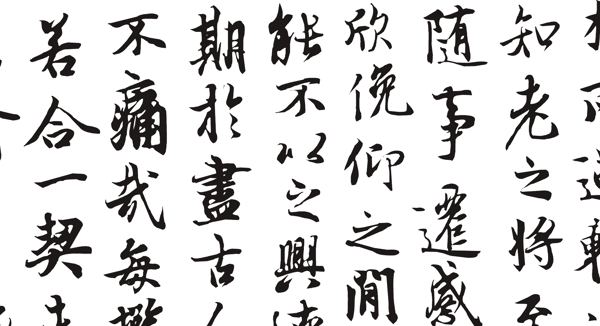 知老之將至
隨事遷感
欣俛仰之閒
能不以之興
期於盡古
不痛哉每
若合一契